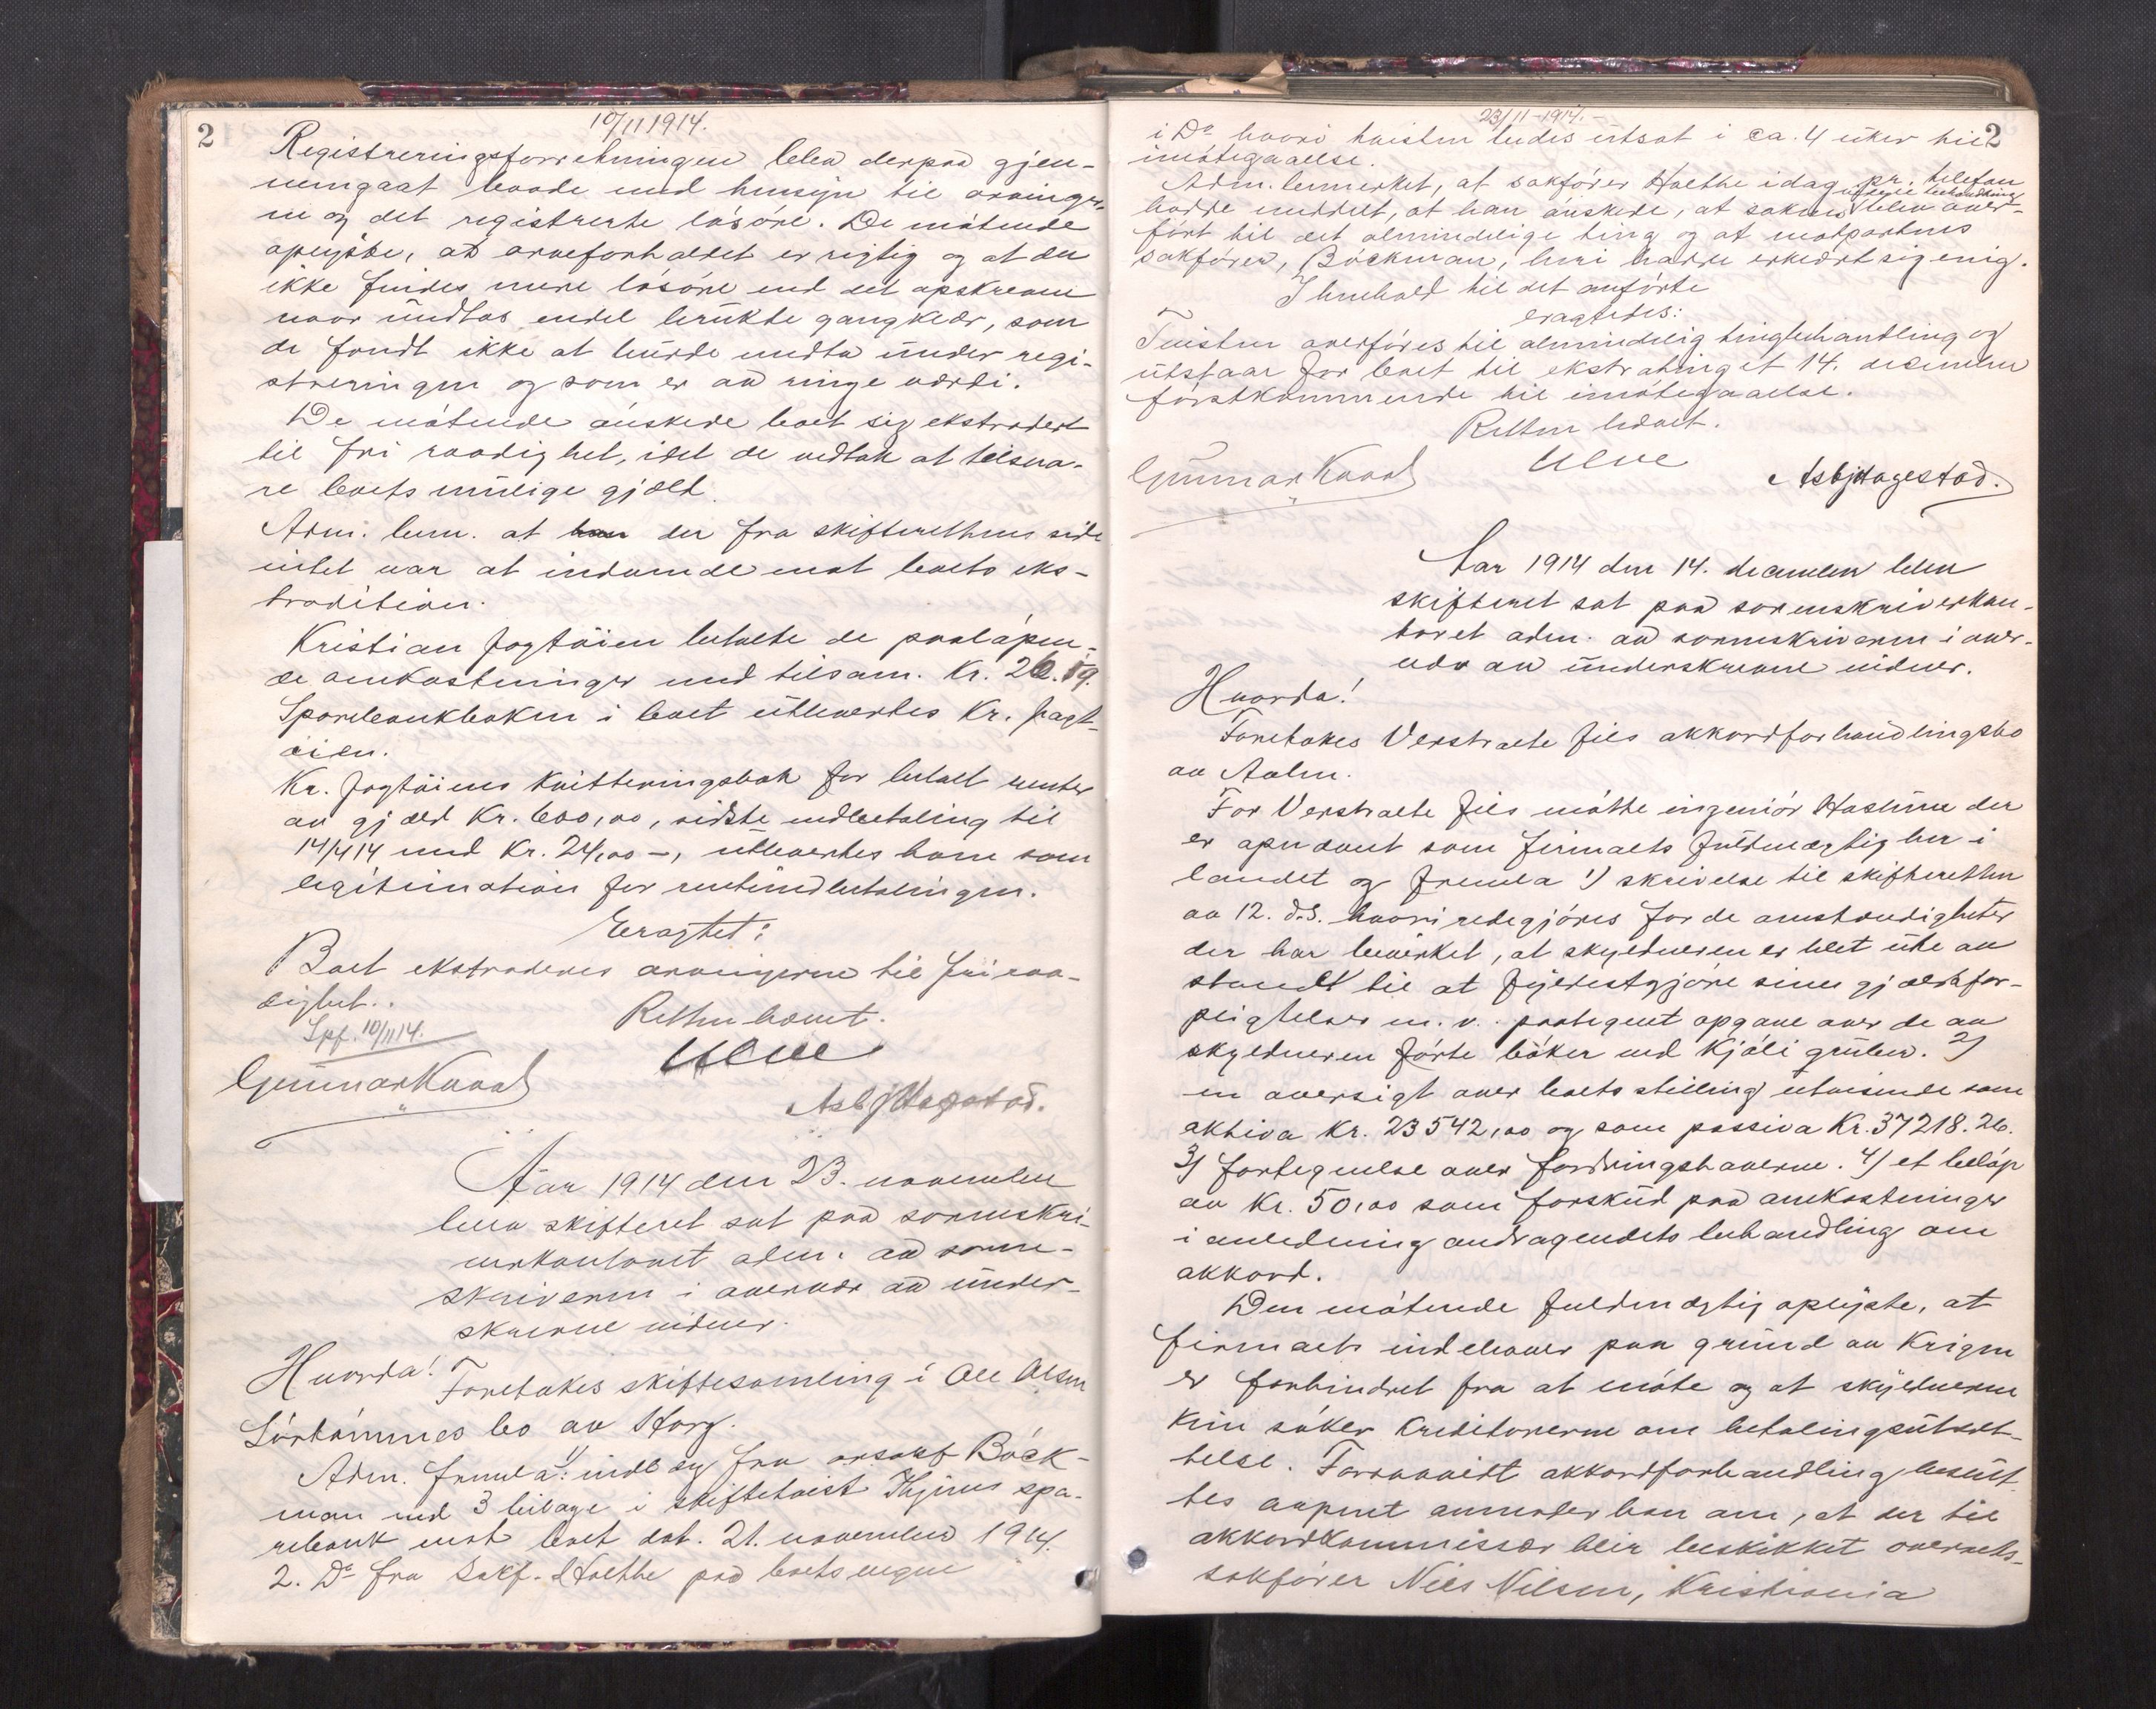 2
10/11 1914.
Registreringsforretningen blev derpaa gjen-
nemgaat baade med hensyn til arvinger-
ne og det registrerte løsøre. De møtende
oplyste, at arveforholdet er rigtig og at der
ikke findes mere løsøre end det opskrevne
naar undtas endel brukte gangklær, som
de fandt ikke at burde medta under regi-
streringen og som er av ringe værdi.
De møtende ønskede boet sig ekstradert
til fri raadighet, idet de vedtok at tilsva-
re boets mulige gjæld.
Adm. bem. at der fra skifterettens side
intet var at indvende mot boets eks-
tradition.
Kristian Jagtøien betalte de paaløpen-
de omkostninger med tilsam. Kr. 26.59.
Sparebankboken i boet utleveres Kr. Jagt-
øien.
Kr. Jagtøiens kvitteringsbok for betalt renter
av gjæld Kr. 600,00, sidste indbetaling til
14/4 14 med Kr. 24,00 -, utleveres ham som
legitimation for renteindbetalingen.
Eragtet:
Boet ekstraderes arvingerne til fri raa-
dighet.
Spf. 10/11 14.
Retten hævet.
Ulve
Gunnar Kvaal
Asbj Hagestad.
Aar 1914 den 23. november
blev skifteret sat paa sorenskri-
verkontoret adm. av soren-
skriveren i overvær av under-
skrevne vidner.
Hvorda!
Foretokes skiftesamling i Ole Olsen
Sørtømmes bo av Horg.
Adm. fremla: 1) indlæg fra orsakf Bøck-
man med 3 bilage i skiftetvist spa-
rebank mot boet dat. 21. november 1914.
2. Do fra Sakf. Holthe paa boets vegne
23/11-1914.
2
i Do hvori tvisten bedes utsat i ca. 4 uker til
imøtegaaelse.
Adm. bemerket, at sakfører Holthe idag pr. telefon
hadde meddelt, at han ønskede, at saken blev over-
ført til det almindelige ting og at motpartens
sakfører, Bøckman, heri hadde erklært sig enig.
I henhold til det anførte
eragtedes:
Tvisten overføres til almindelig tingbehandling og
utstaar for boet til ekstratinget 14. desember
førstkommende til imøtegaaelse.
Retten hævet.
Gunnar Kvaal
Ulve
Asbj Hagestad.
Aar 1914 den 14. december blev
skifteret sat paa sorenskriverkon-
toret adm. av sorenskriveren i over-
vær av underskrevne vidner.
Hvorda!
Foretokes Verstraete fils akkordforhandlingsbo
av Aalen.
For Verstraete fils møtte ingeniør der
er opnævnt som firmaets fuldmægtig her i
landet og fremla 1) skrivelse til skifteretten
av 12. d.s. hvori redegjøres for de omstændigheter
der har bevirket, at skyldneren er blet ute av
stand til at fyldestgjøre sine gjældsfor-
pligtelser m.v. paategnet opgave over de av
skyldneren førte bøker ved Kjøli gruber. 2)
en oversigt over boets stilling utvisende som
aktiva Kr. 23542,00 og som passiva Kr. 37218.26.
3) fortegnelse over fordringshaverne. 4) et beløp
av Kr. 50,00 som forskud paa omkostninger
i anledning andragendets behandling om
akkord.
Den møtende fuldmægtig oplyste, at
firmaets indehaver paa grund av krigen
er forhindret fra at møte og at skyldneren
kun søker kreditorerne om betalingsutsæt-
telse. Forsaavidt akkordforhandling beslut-
tes aapnet anmoder han om, at der til
akkordkommissær blir beskikket overrets-
sakfører Niels Nilsen, Kristiania